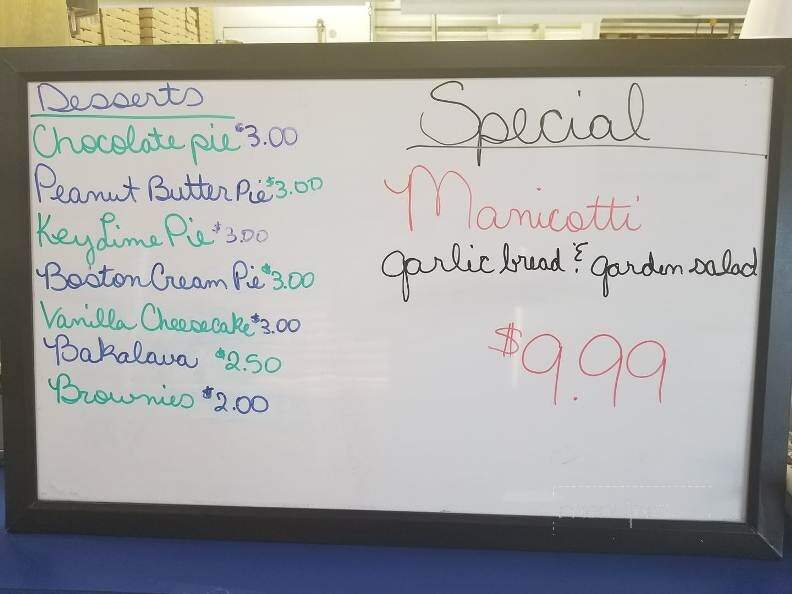 Desserts
Chocolate pie $3.00
Peanut Butter Pie $3.00
Key Lime Pie $3.00
Boston Cream Pie $3.00
Vanilla Cheesecake $3.00
Bakalava $2.50
Brownies $2.00
Special
Manicotti
garlic bread & garden salad
$9.99